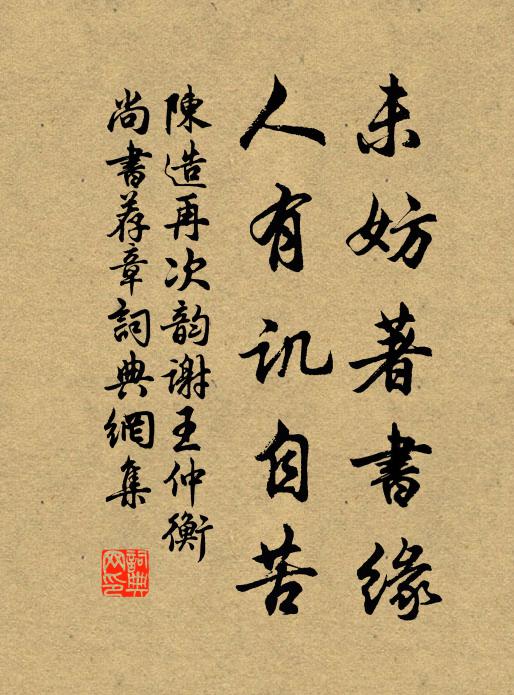 未妨著書緣
人有訊自苦
陳造再次韵謝王仲衡
尚書荐章詞典網集
詞典
网印